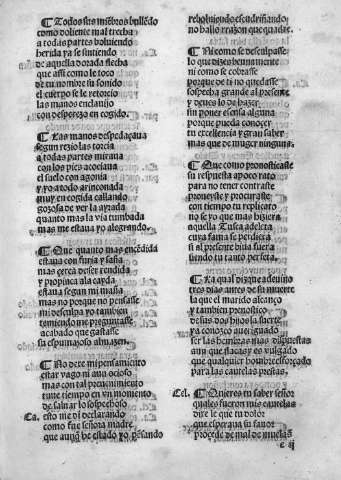 Todos sus miẽbros bulliẽdo
como doliente mal trecha
a todas partes boluiendo
herida ya se sintiendo
de aquella dorada flecha
que assi como le toco
de tu nombre su sonido
el cuerpo se le retorcio
las manos enclauijo
con desperezo en cogido.
Las manos despedaçaua
segun rezio las torcia
a todas partes miraua
con los pies acoceaua
el suelo con agonia
y yo a todo arinconada
muy en cogida callando
gozosa de ver la ayrada
quanto mas la via tumbada
mas me estaua yo alegrando.
Que quanto mas encẽdida
estaua con furia y saña
mas cerca de ser rendida
y propinca a la cayda
estaua segun mi maña
mas no porque no pensasse
mi desculpa yo tambien
temiendo me preguntasse
acabado que gastasse
su espumajoso almazen.
No dexe mi pensamiento
estar vago ni aun ocioso
mas con tal
tuue tiempo en vn momento
de saluar lo sospechoso
Ca. esto me di declarando
como fue señora madre
que aunq̃ he estado yo pẽsando
reboluiendo escudriñando
no hallo razon que quadre.
Ni como se desculpasse
lo que dizes buenamente
ni como se cobrasse
porque de ti no quedasse
sospecha grande al presente
y deues lo de hazer
sin poner escusa alguna
porque pueda conoçer
tu excellencia y gran saber
mas que de muger ninguna.
Que como pronosticaste
su respuesta apoco rato
para no tener contraste
proueyste y procuraste
con tiempo tu replicato
no se yo que mas hiziera
aquella Tusca adeleta
cuya fama se perdiera
si al presente biua fuera
siendo tu tanto perfeta.
La qual dizque adeuino
tres dias antes de su muerte
la que el marido alcanço
y tambien pronostico
de sus dos hijos la suerte
ya conozco auiriguado
ser las hembras mas dispuestas
aun que flacas y es vulgado
que qualquier hombre esforçado
para las cautelas prestas.
Cel. Quieres tu saber señor
quales fueron mis cautelas
dixe le que tu dolor
que esperaua su fauor
procede de mal de muelas
c ij